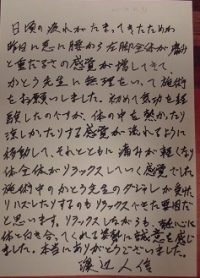 日頃の疲れがたまってきたためか
昨日に急に腰から左脚全体が痛み
と重だるさの感覚が増してきて、
かとう先生に無理をいって施術
をお願いしました。初めて気功を経
験したのですが、体の中を熱かたり
涼しかたりする感覚が流れるように
移動して、それとともに痛みが軽くなり
体全体がリラックスしていく感覚でした
施術中のかとう先生のダジャレが愉快
リラックスしたりするのもリラックスできた要因だ
と思います。リラックスしながらも、熱心に
体と向き合ってくれる姿勢に誠意を感じ
ました。本当にありがとうございました。
渡辺人